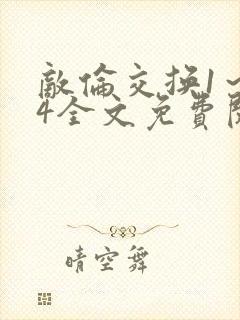 敵倫交換1～
4全文免費閱
晴空舞